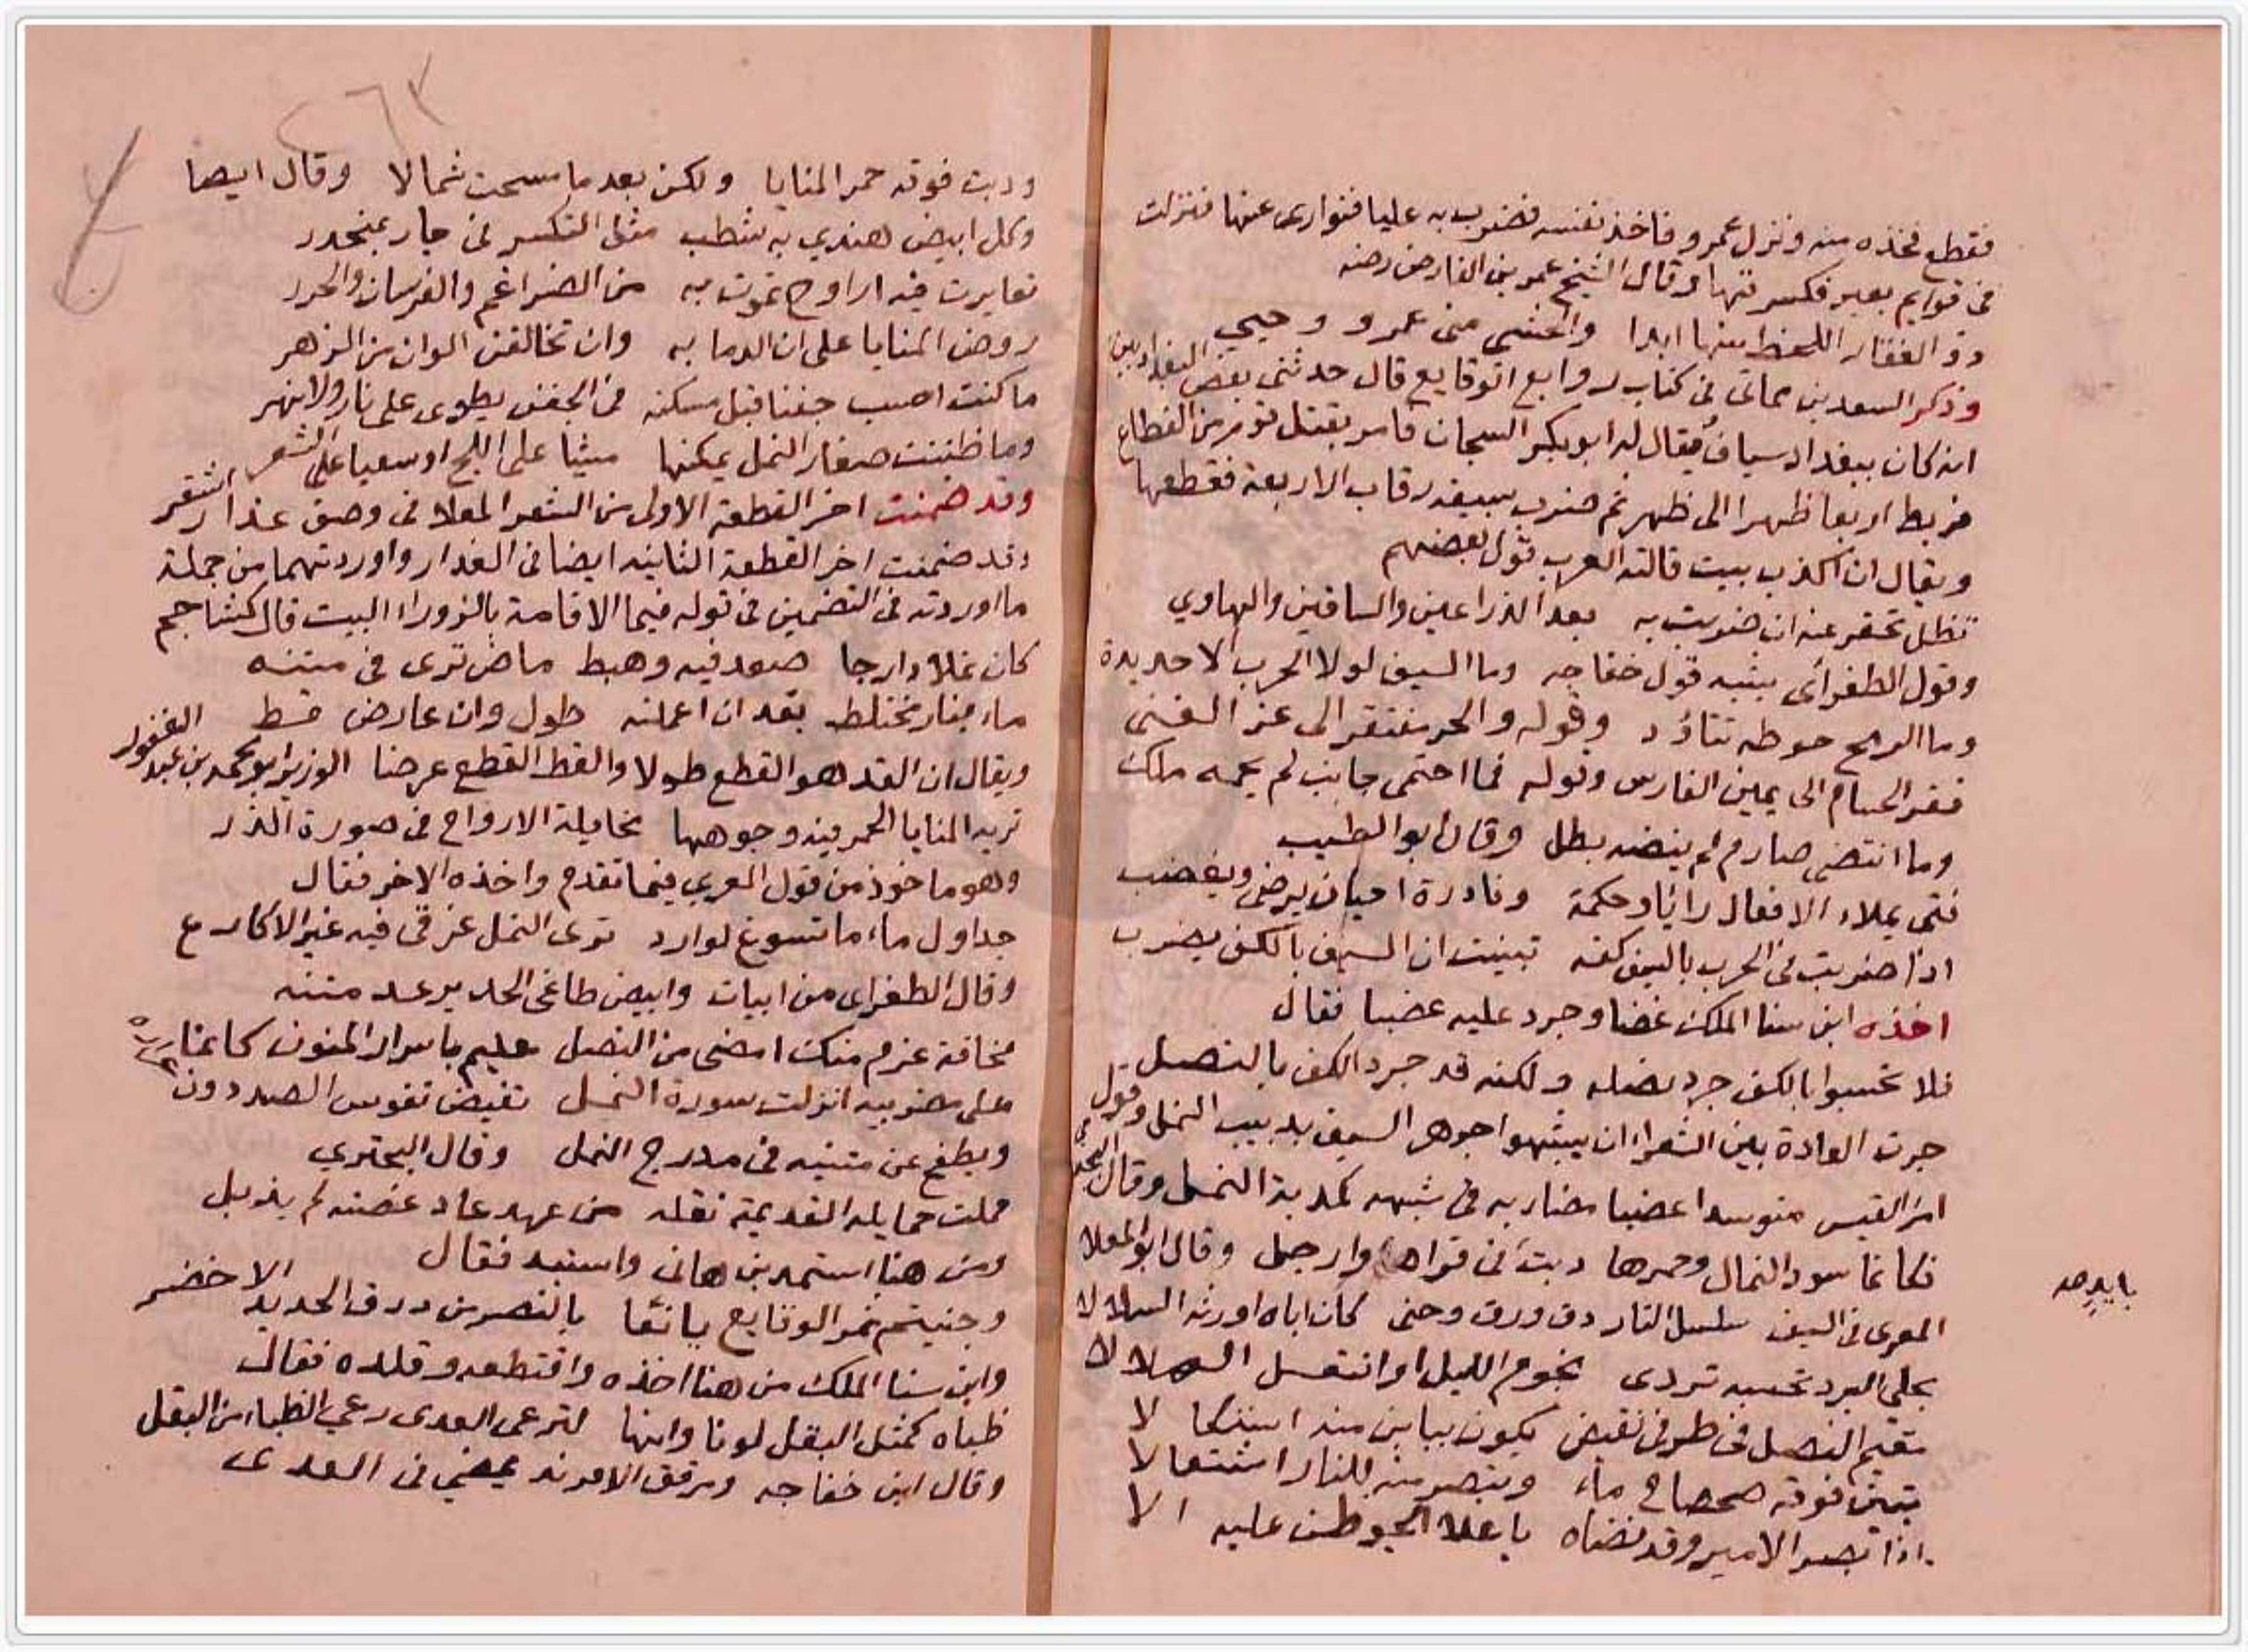 فقطع فخذه منه ونزل عمرو فاخذ نفسه فضرب به عليا فتوارى عنها فنزلت
فى قوايم بعير فكسرتها وقال الشيخ عمر بن الفارض رضه
ذو الفقار اللحظ منها ابدا والحشى منى عمرو وحيي
وذكر السعد بن مماتى فى كتاب روايع الوقايع قال حدثنى بعض البغداديين
انه كان ببغداد سياف يقال له ابو بكر السجان فامر بقتل قوم من القطاع
فربط اربعا ظهرا الى ظهر ثم ضرب بسيفه رقاب الاربعة فقطعها
ويقال ان اكذب بيت قالته العرب قول بعضهم
تظل تحفر عنه ان ضربت به بعد الذراعين والساقين والهادي
وقول الطغرائى يشبه قول خفاجه وما السيف لولا الحرب الا حديدة
وما الرمح حوطه تتاؤد وقوله والحر مفتقر الى عز الغنى
فقر الحسام الى يمين الفارس وقوله فما احتمى جانب لم يحمه ملك
وما انتضى صارم لم ينضه بطل وقال ابو الطيب
فتى يملاء الافعال رائا وحكمة ونادرة احيان يرضى ويغضب
اذا ضربت فى الحرب بالسيف كفه تبينت ان السيف بالكف يضرب
اخذه ابن سنا الملك غضا وجرد عليه عضبا فقال
فلا تحسبوا بالكف جرد نصله ولكنه قد جرد الكف بالنصل
جرت العادة بين الشعراء ان يشبهوا جوهر السيف بدبيب النمل وقول
امرء القيس متوسدا عضبا مضاربه فى شبهه كمدبة النمل وقال البحتري
فكانما سود النمال وحمرها دبت فى قراها وارجل وقال ابو العلاء
بايد صه
المعرى فى السيف سليل النار دق ورق وحتى كان اباه اورثه السلالا
يحلى البرد تحسبه تردى نجوم الليل او انتعل الهلالا
مقيم النصل فى طرفى نقيض يكون يباين منه اشتكالا
تبين فوقه ضحضاح ماء وتبصر منه للنار اشتعالا
اذا بصر الامير وقد نضاه باعلا الجو ظن عليه الا
ودبت فوقه حمر المنايا ولكن بعد ما مسحت نمالا وقال ايضا
وكل ابيض هندي به شطب مثل التكسر فى جار بمنحدر
تغايرت فيه ارواح تموت به من الضراغم والفرسان والجرر
روض المنايا على ان الدما به وان تخالفن الوان من الزهر
ما كنت احسب جفنا قبل مسكنه فى الجفن يطوى على نار ولا نهر
وما ظننت صغار النمل يمكنها مشيا على اللج او سعيا على الشعر
وقد ضمنت اخر القطعة الاولى من الشعر المعلا فى وصف عذار اشقر
وقد ضمنت اخر القطعة الثانيه ايضا فى العذار واوردتهما من جملة
ما اوردته فى التضمين فى قوله فيما الاقامة بالزوراء البيت قال كشاجم
كان نملا دارجا صعد فيه وهبط ماض ترى فى متنه
ماء بنار مختلط يقد ان اعملته طول وان عارض قط
ويقال ان القد هو القطع طولا والقط القطع عرضا الوزير ابو محمد بن عبد الغفور
تريه المنايا الحمر فيه وجوهها مخايلة الارواح فى صورة الذر
وهو ماخوذ من قول المعري فيما تقدم واخذه الاخر فقال
جداول ماء ما تسوغ لوارد ترى النمل غرقى فيه غير الاكارع
وقال الطغراى من ابيات وابيض طاغى الحد يرعد متنه
مخافة عزم منك امضى من النصل عليم باسرار المنون كانما
على مضربيه انزلت سورة النمل تفيض نفوس الصيد دون
ويطفح عن متنيه فى مدرج النمل وقال البحتري
حملت حمايله القديمة نقله من عهد عاد غضته لم يذبل
ومن هنا استمد بن هانى واستبد فقال
وجنيتم ثمر الوقايع يانعا بالنصر من درق الحديد الاخضر
وابن سنا الملك من هنا اخذه واقتطعه وقلده فقال
ظباه كمثل البقل لونا وانها لترعى العدى رعي الظباء من البقل
وقال ابن خفاجه ومرقق الافرند يمضي فى العدى